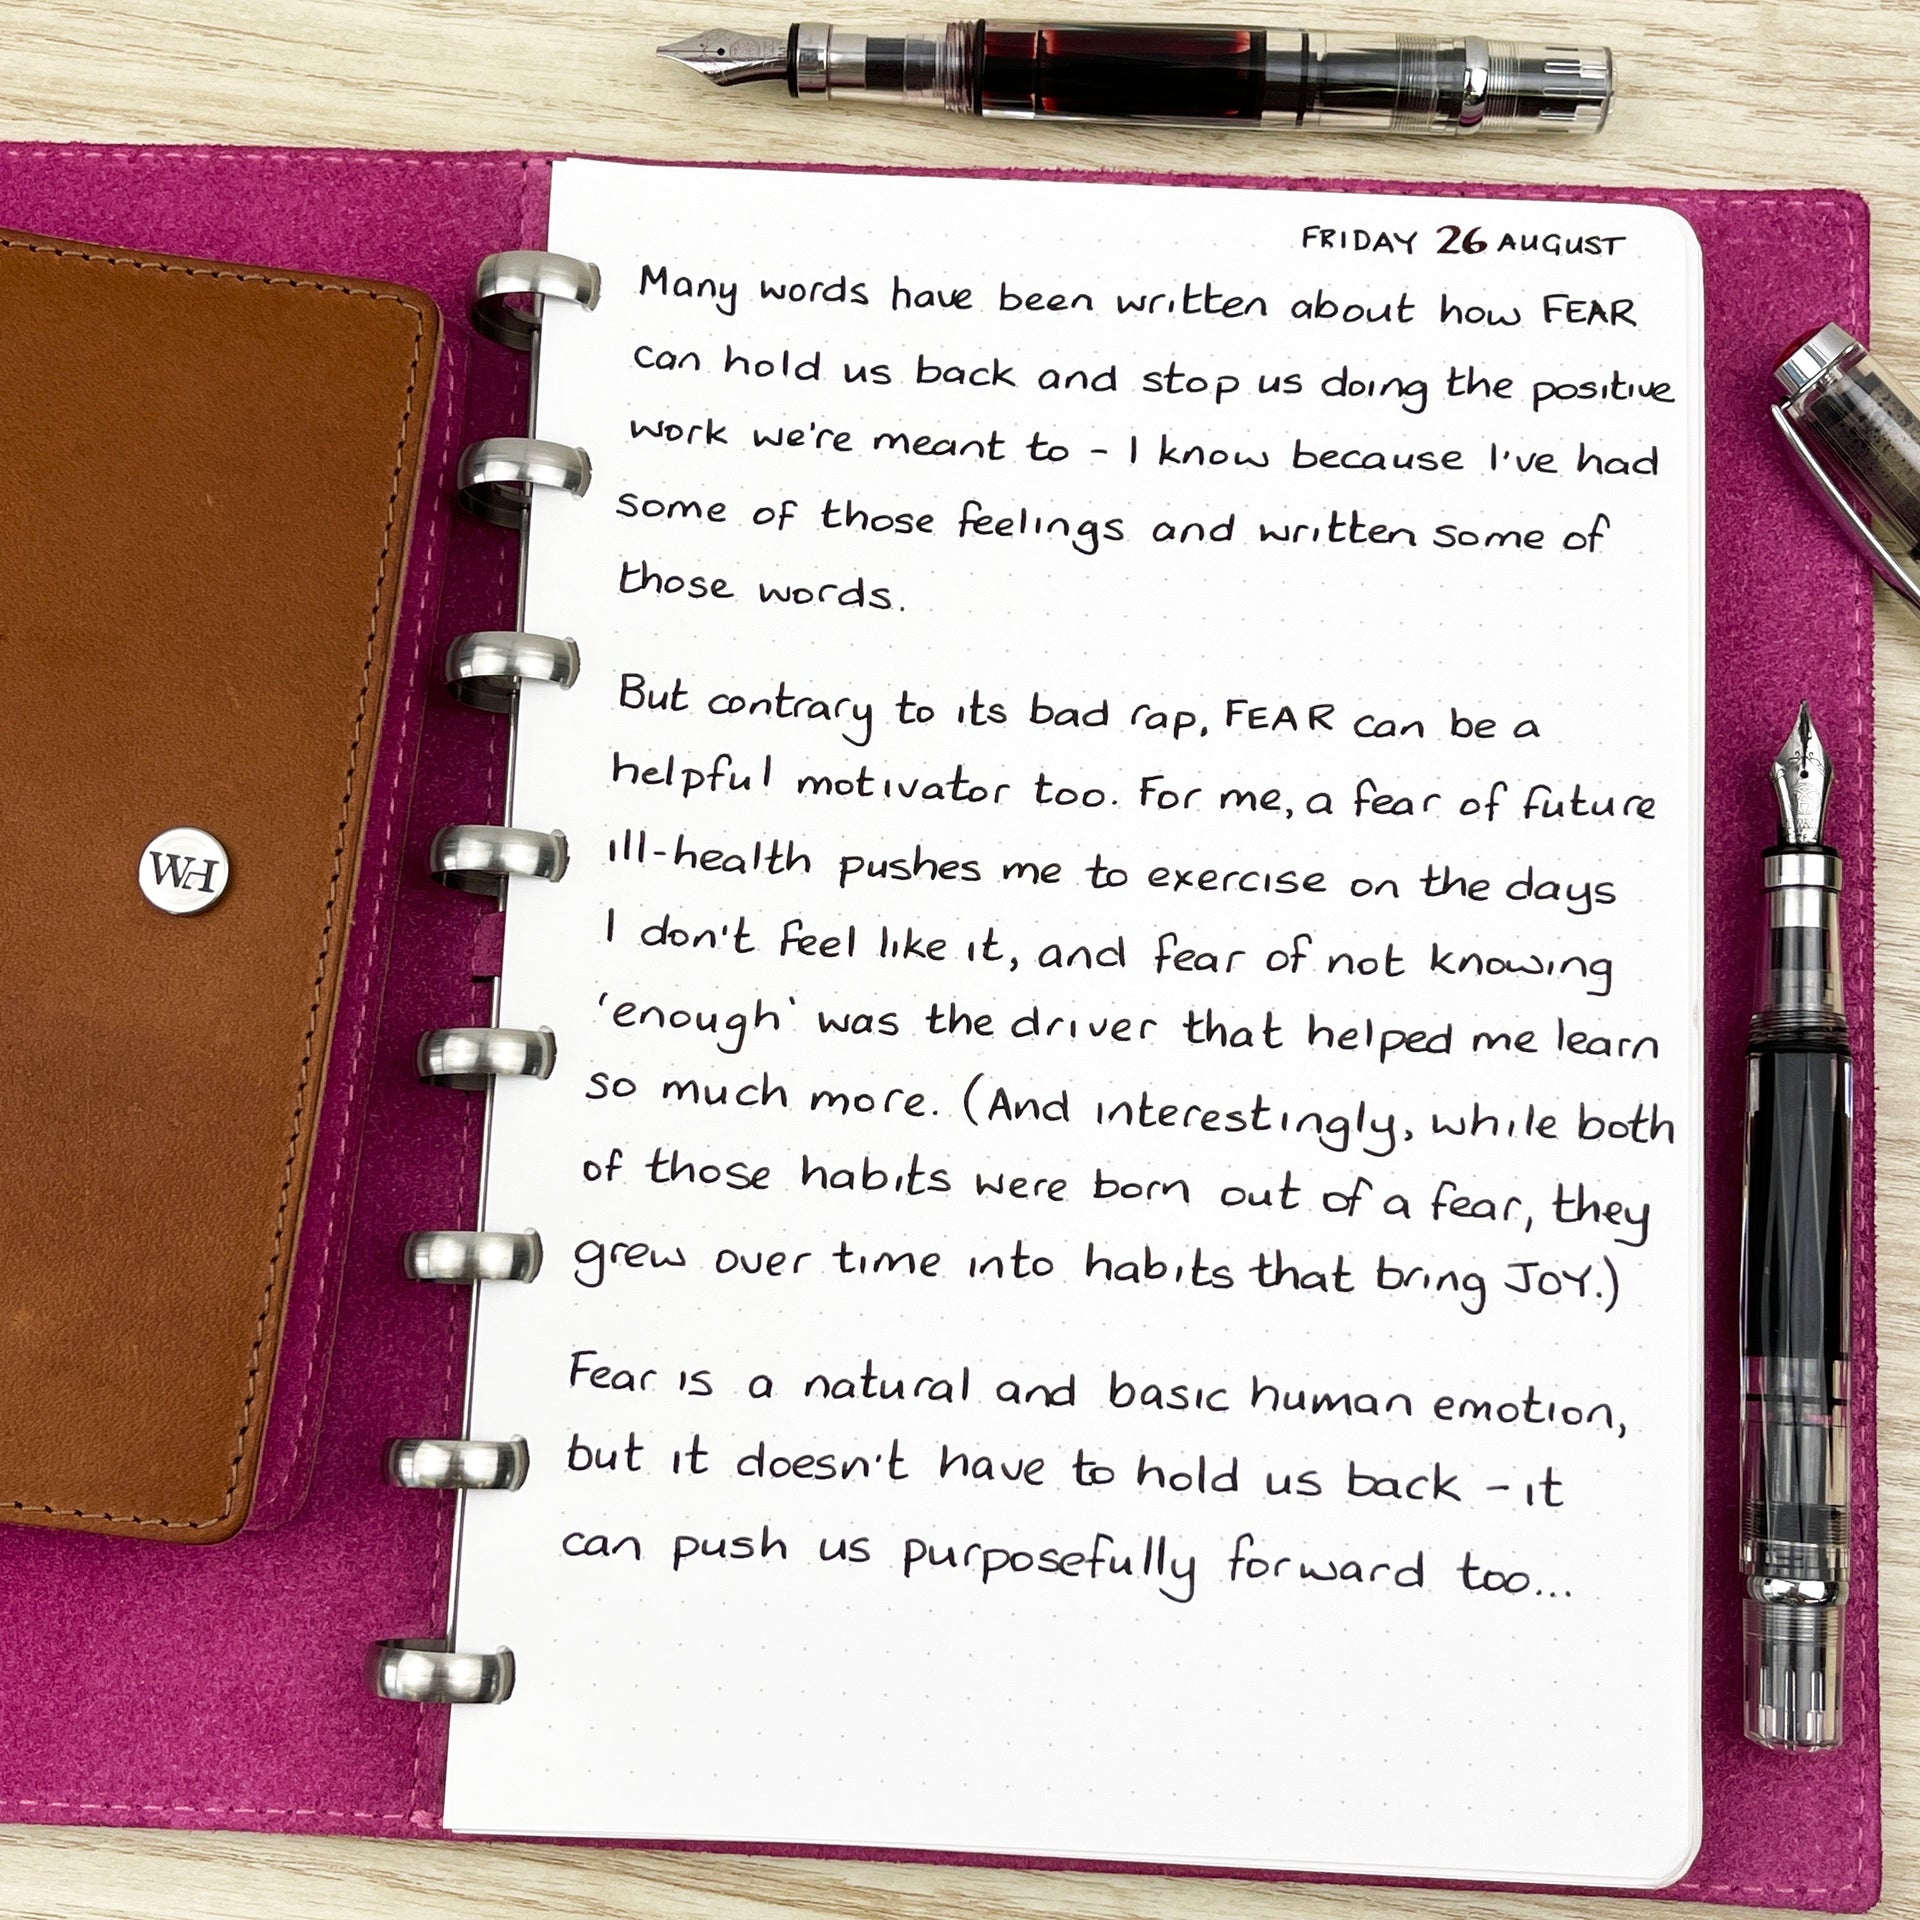 FRIDAY 26 AUGUST
Many words have been written about how FEAR
can hold us back and stop us doing the positive
work we're meant to - I know because I've had
some of those feelings and written some of
those words.
But contrary to its bad rap, FEAR can be a
helpful motivator too. For me, a fear of future
ill-health pushes me to exercise on the days
I don't feel like it, and fear of not knowing
'enough' was the driver that helped me learn
so much more. (And interestingly, while both
of those habits were born out of a fear, they
grew over time into habits that bring JOY.)
Fear is a natural and basic human emotion,
but it doesn't have to hold us back - it
can push us purposefully forward too...
WH